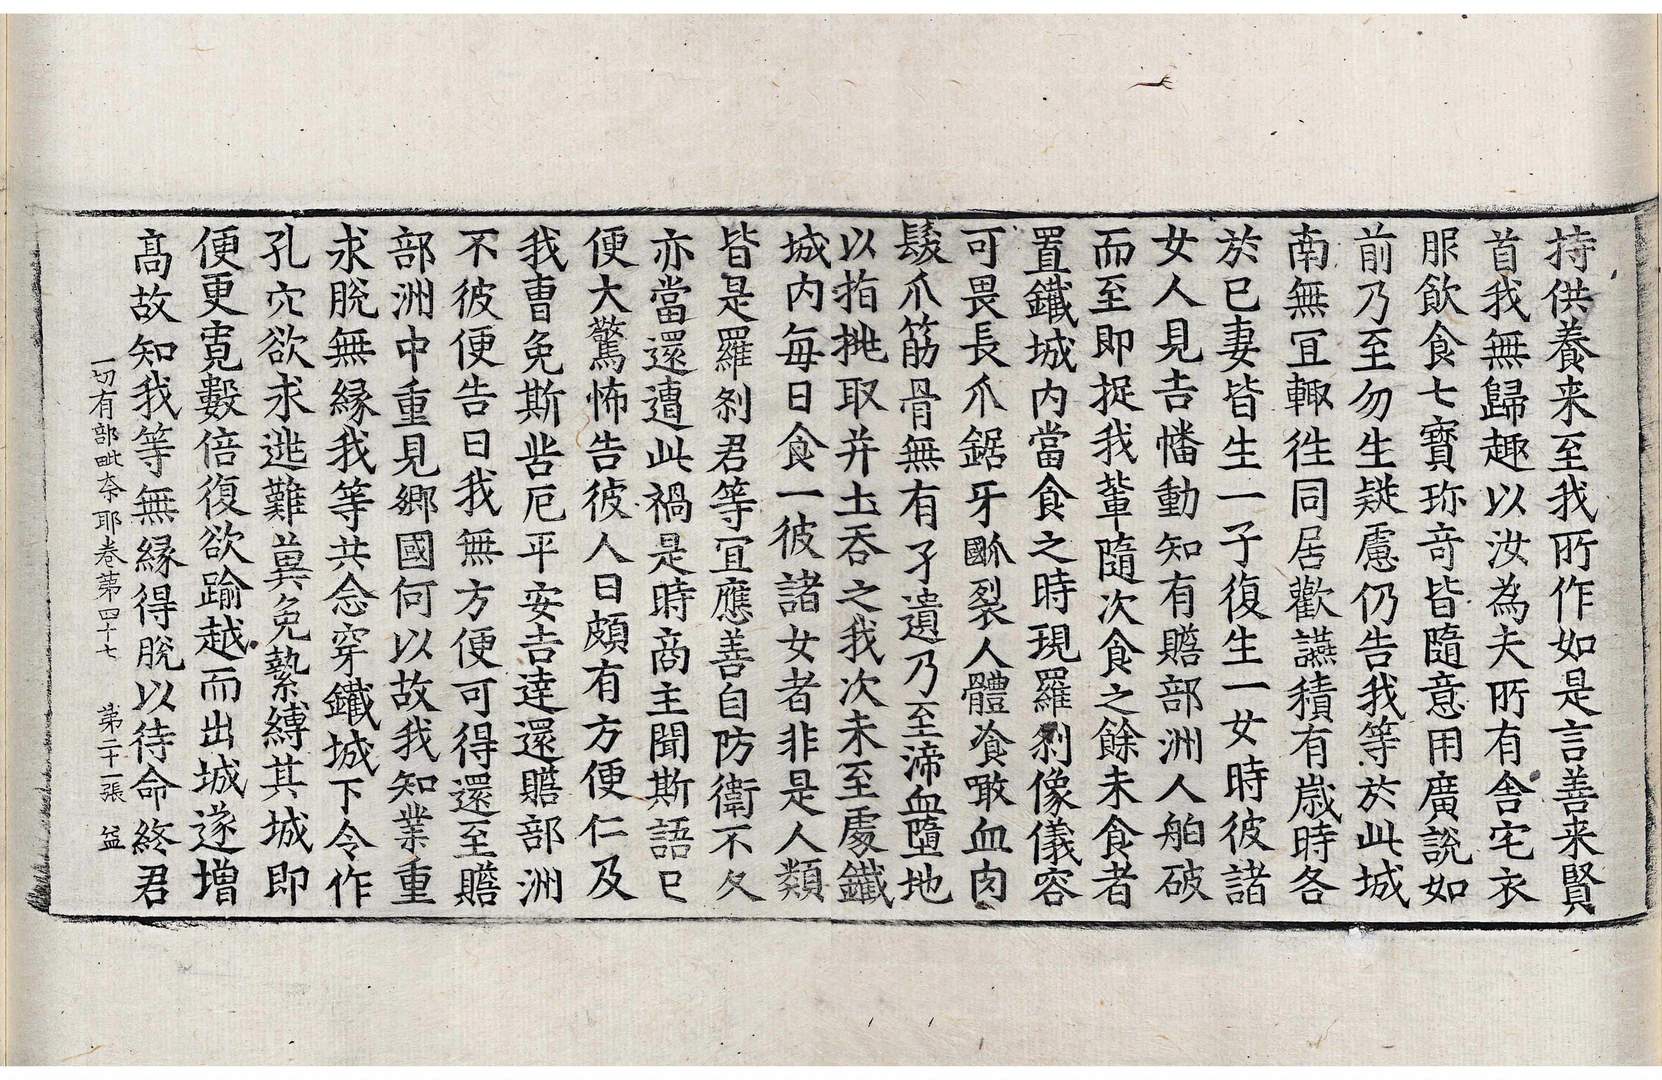 持供養来至我所作如是言善来賢
首我無歸趣以汝為夫所有舎宅衣
服飲食七寳珎竒皆隨意用廣說如
前乃至勿生疑慮仍告我等於此城
南無冝輙往同居歡讌積有歳時各
於已妻皆生一子復生一女時彼諸
女人見吉幡動知有贍部洲人舶破
而至即捉我輩隨次食之餘未食者
置鐵城内當食之時現羅刹像儀容
可畏長爪鋸牙𪙉裂人體飡噉血肉
髮爪筋骨無有孑遺乃至渧血墮地
以指挑取并土吞之我次未至處鐵
城内每日食一彼諸女者非是人類
皆是羅刹君等冝應善自防衛不久
亦當還遭此禍是時商主聞斯語已
便大驚怖告彼人曰頗有方便仁及
我曹免斯苦厄平安吉達還贍部洲
不彼便告曰我無方便可得還至贍
部洲中重見郷國何以故我知業重
求脫無縁我等共念穿鐵城下令作
孔穴欲求逃難兾免縶縛其城即
便更寛數倍復欲踰越而出城遂增
髙故知我等無縁得脫以待命終君
一切有部毗奈耶卷第四十七 第二十一張 益